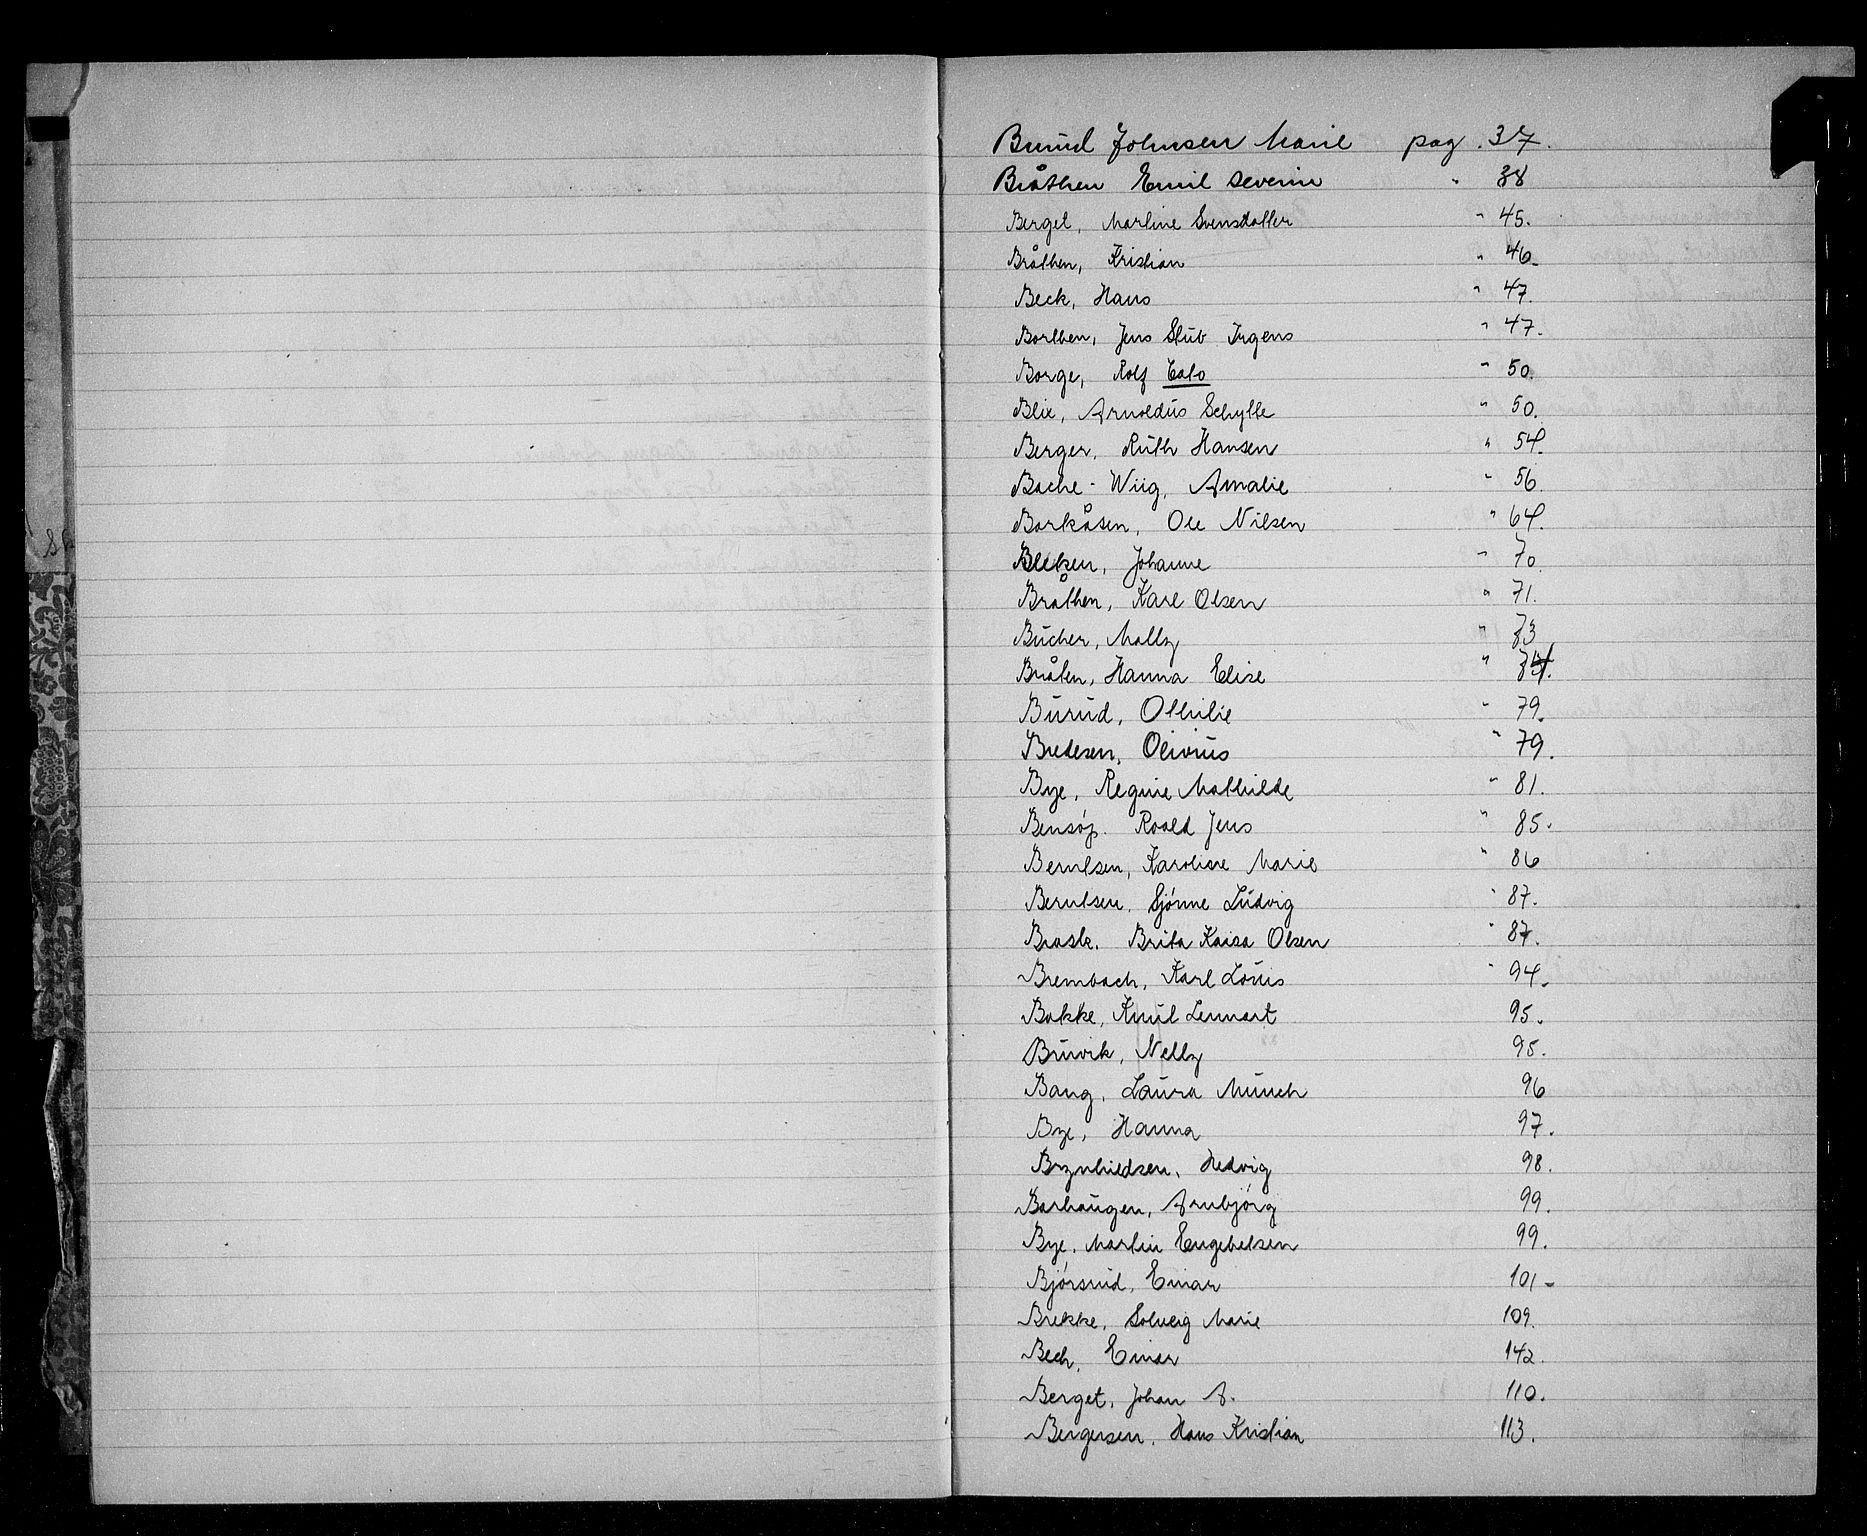 Burud Johnsen Marie pag. 37.
Bråthen Emil Severin " 38
Berget, Martine Svensdatter " 45.
Bråthen, Kristian " 46.
Beck, Hans " 47.
Borthen, Jens Stub Irgens " 47.
Borge, Rolf Calo " 50.
Blix, Arnoldus Schytte " 50.
Berger, Ruth Hansen " 54.
Bache-Wiig, Amalie " 56.
Borkåsen, Ole Nilsen " 64.
Bleken, Johanne " 70.
Bråthen, Karl Olsen " 71.
Bucher, Mally " 73
Bråten, Hanna Elise " 74.
Burud, Othilie " 79.
Bredesen, Olivius " 79.
Bye, Regine Mathilde " 81.
Roald Jens " 85.
Berntsen, Karoline Marie " 86
Berntsen, Sjønne Ludvig " 87.
Brask, Brita Kaisa Olsen " 87.
Brembach, Karl Louis " 94.
Bakke, Knut Lennart 95.
Burvik, Nelly 95.
Bang, Laura Munch 96
Bye, Hanna 97.
Brynhildsen, Hedvig 98.
Barhaugen, Arnbjörg 99.
Bye, Martin Engebetsen 99.
Bjørsrud, Einar 101-
Brekke, Solveig Marie 109.
Bech, Einar 142.
Berget, Johan A. 110.
Bergersen, Hans Kristian 113.